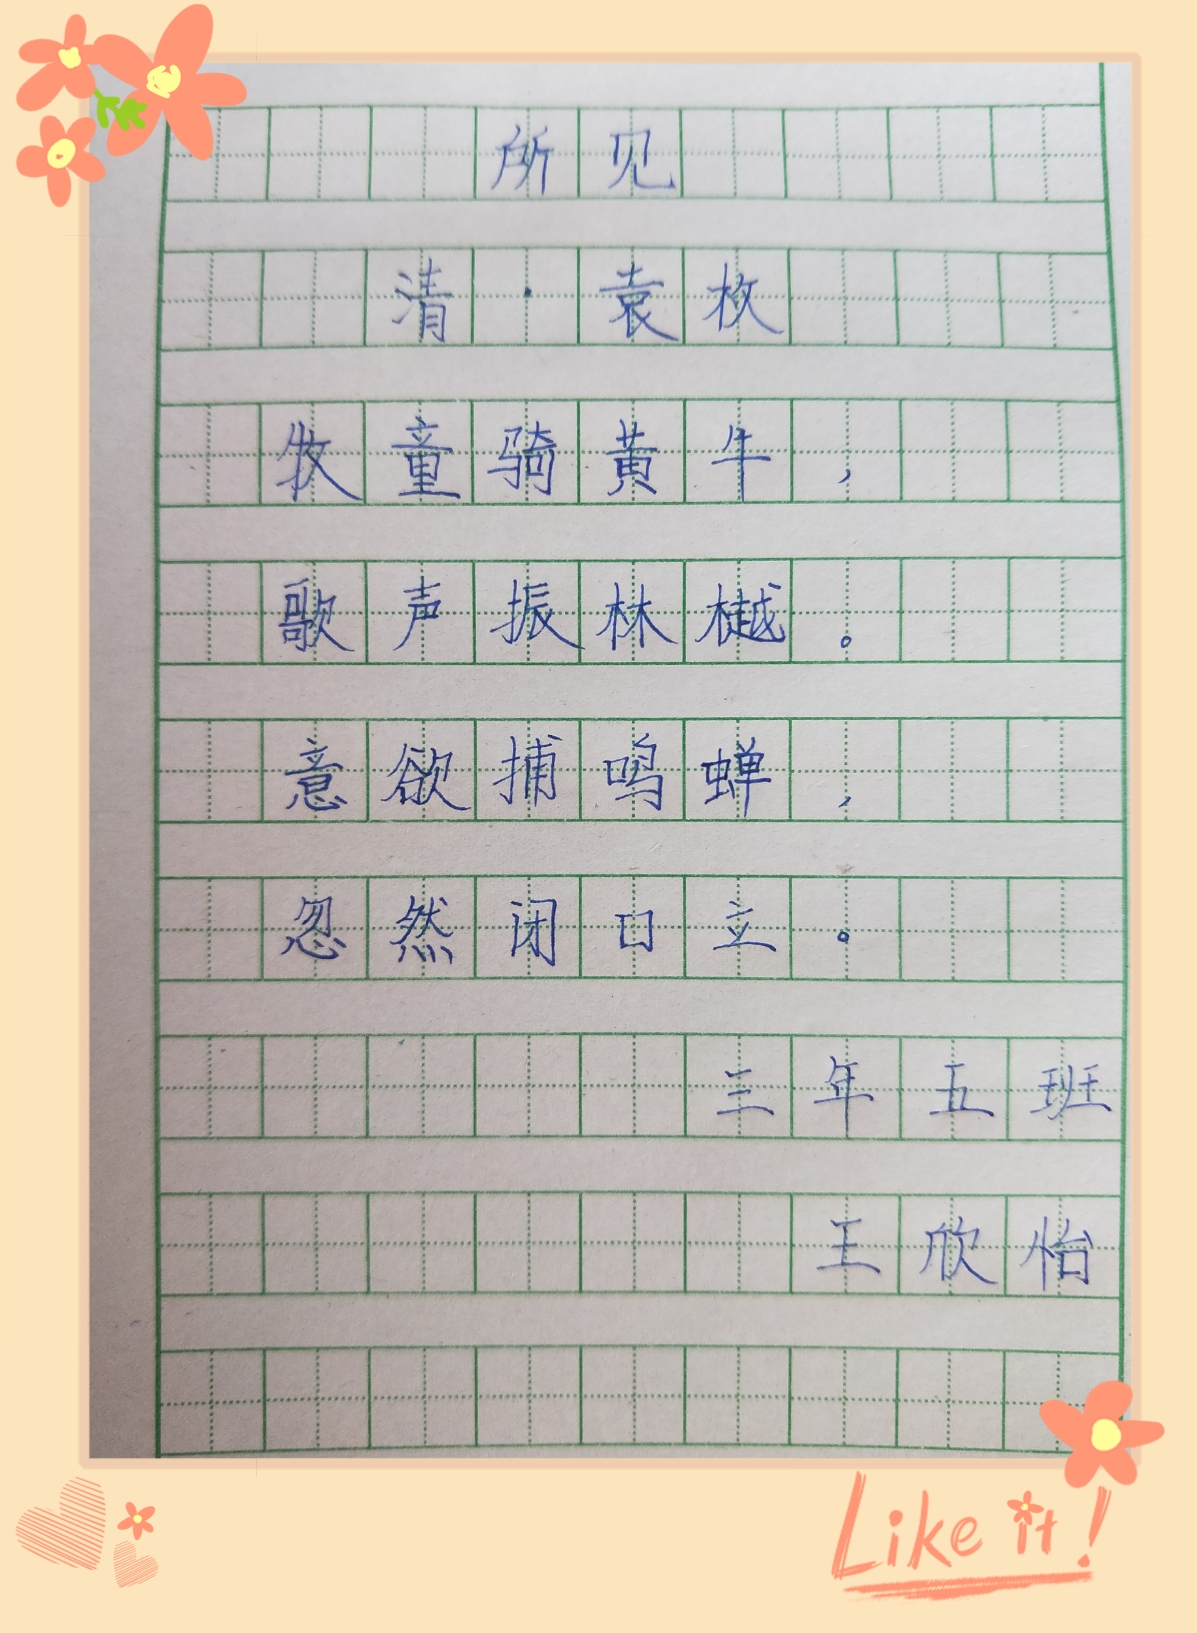 所见
清·袁枚
牧童骑黄牛，
歌声振林樾。
意欲捕鸣蝉，
忽然闭口立。
三年五班
王欣怡
Like it!